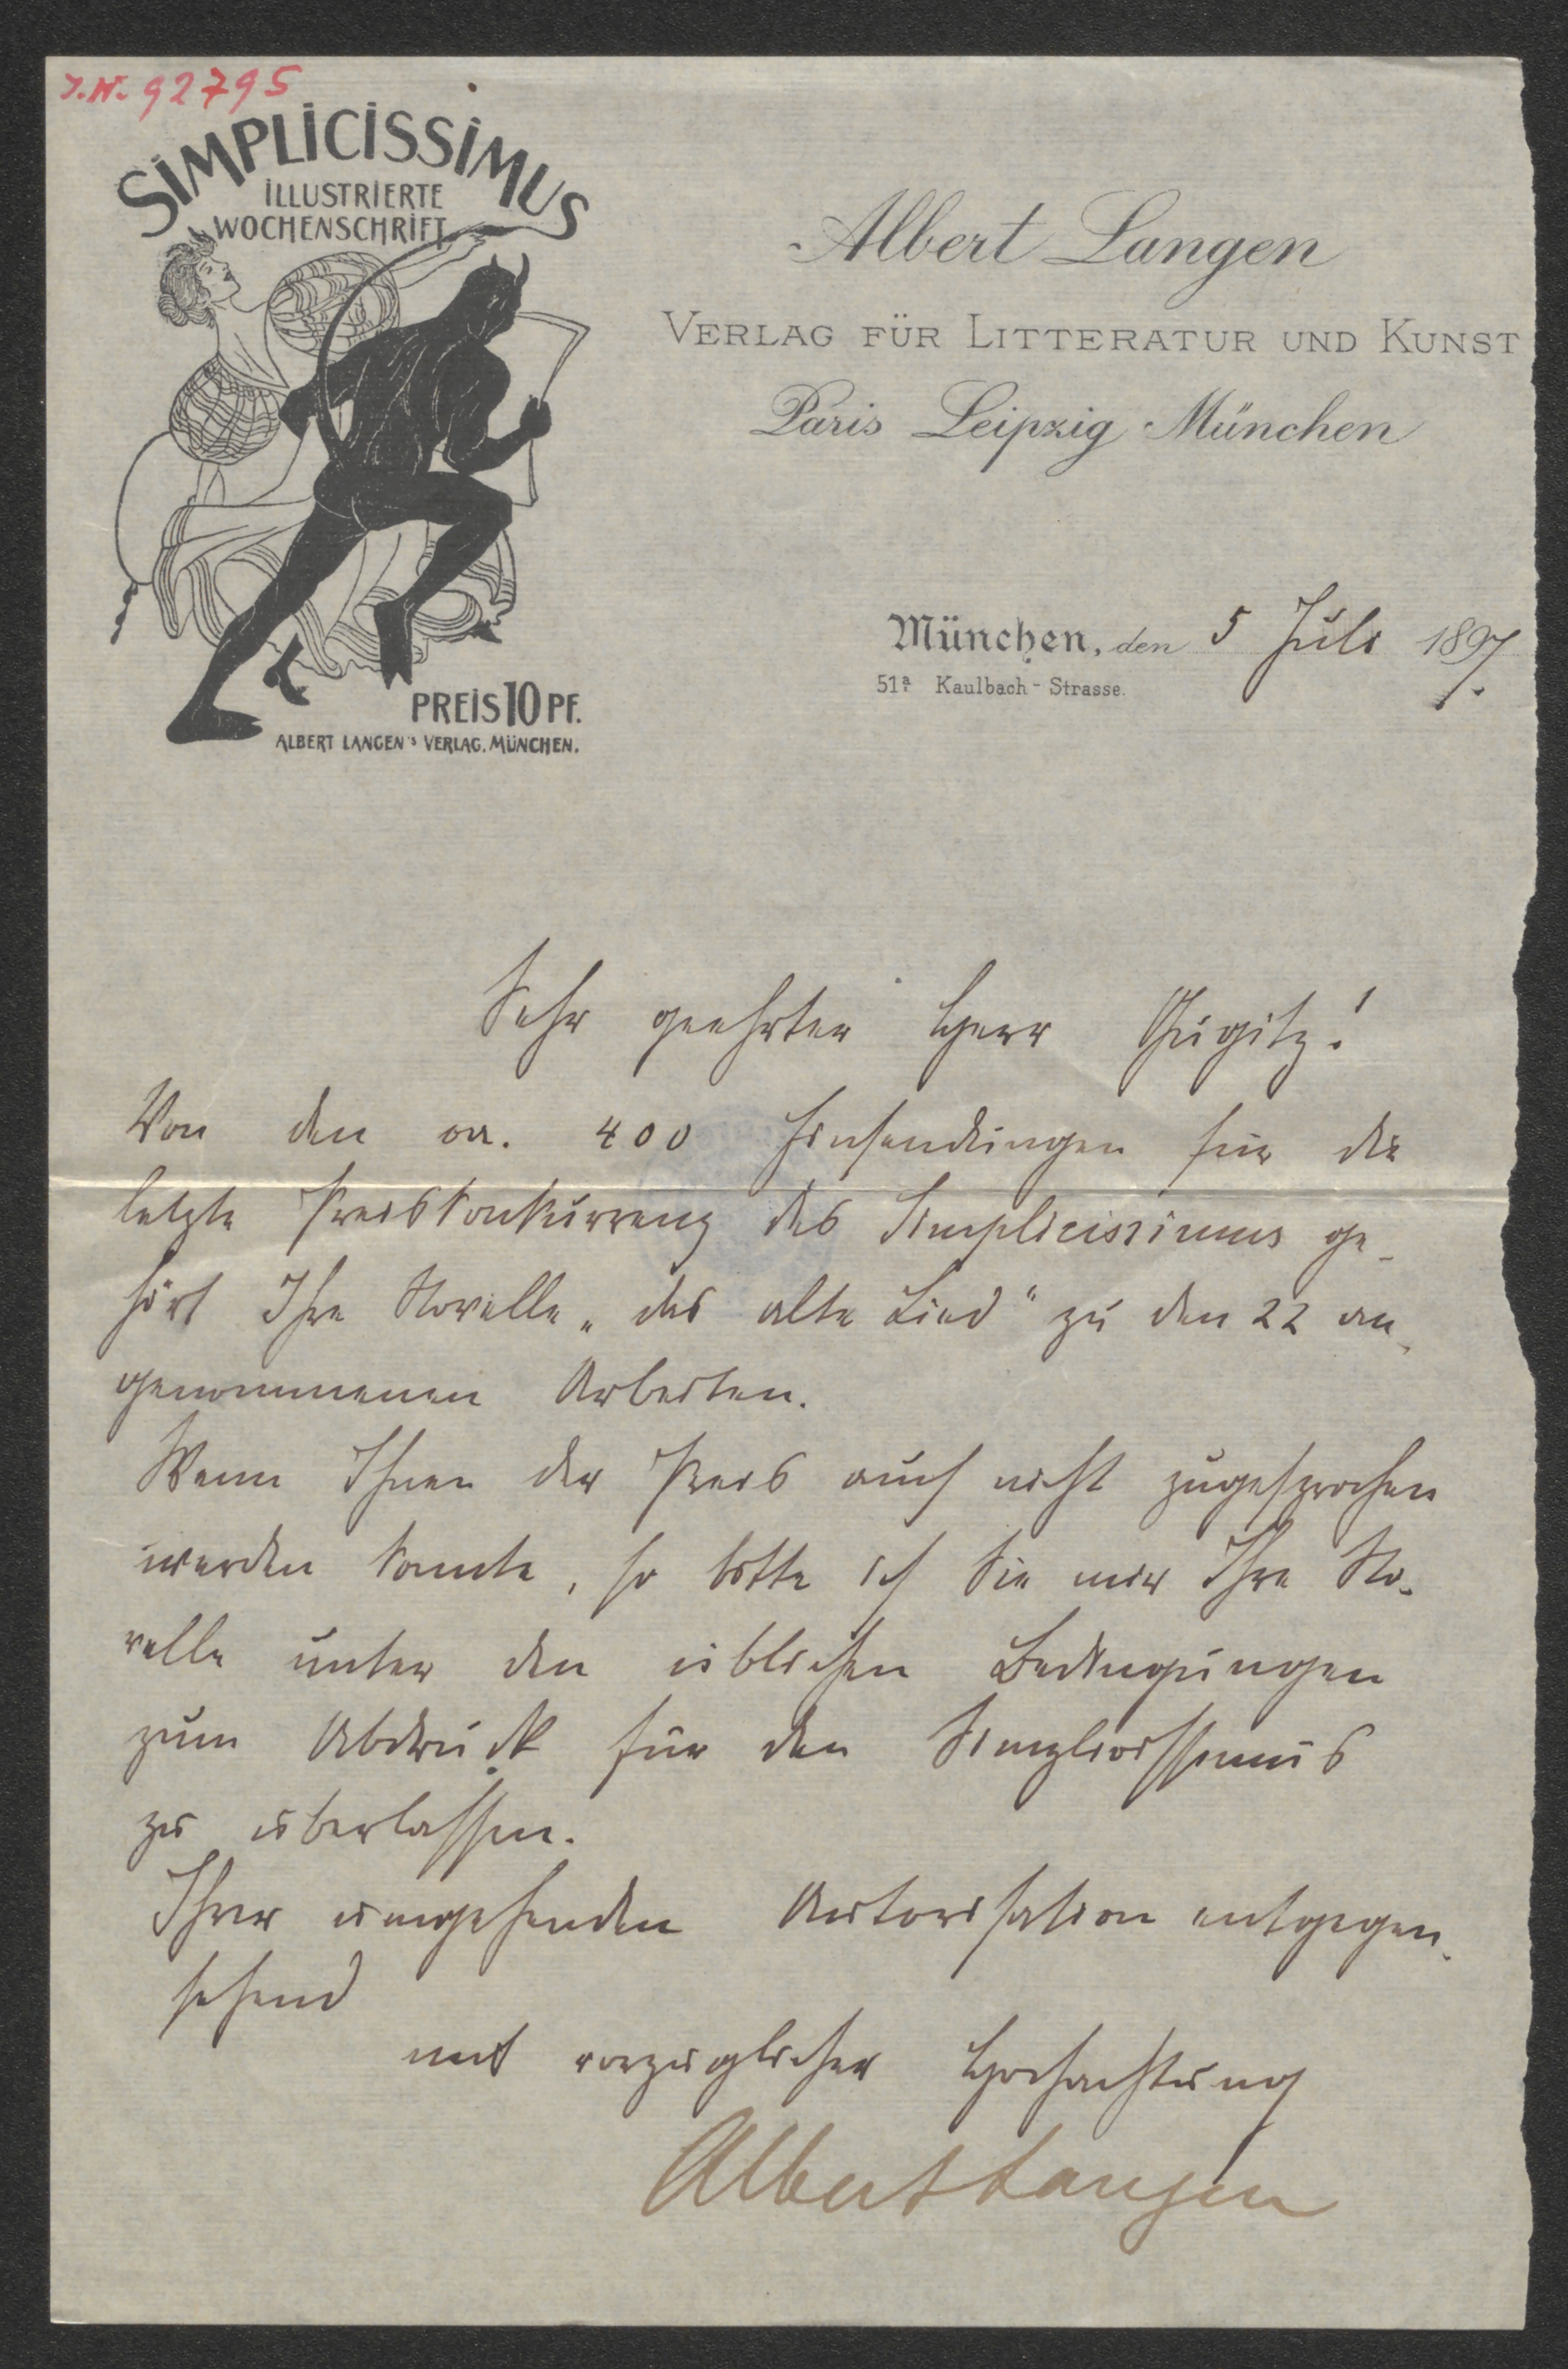 J.N. 92795
SIMPLICISSIMUS
ILLUSTRIERTE
WOCHENSCHRIFT
PREIS 10 PF.
ALBERT LANGEN's VERLAG. MÜNCHEN.
Albert Langen
VERLAG FÜR LITTERATUR UND KUNST
Paris Leipzig München
München, den 5 Juli 1897.
51a. Kaulbach-Strasse.
Sehr geehrter Herr Gugitz!
Von den ca. 400 Einsendungen für die
letzte Preiskonkurrenz des Simplicissimus ge-
hört Ihre Novelle „das alte Lied“ zu den 22 an-
genommenen Arbeiten.
Wenn Ihnen der Preis auch nicht zugesprochen
werden konnte, so bitte ich Sie mir Ihre No-
velle unter den üblichen Bedingungen
zum Abdruck für den Simplicissimus
zu überlassen.
Ihrer umgehenden Autorisation entgegen-
sehend
mit vorzüglicher Hochachtung
Albert Langen